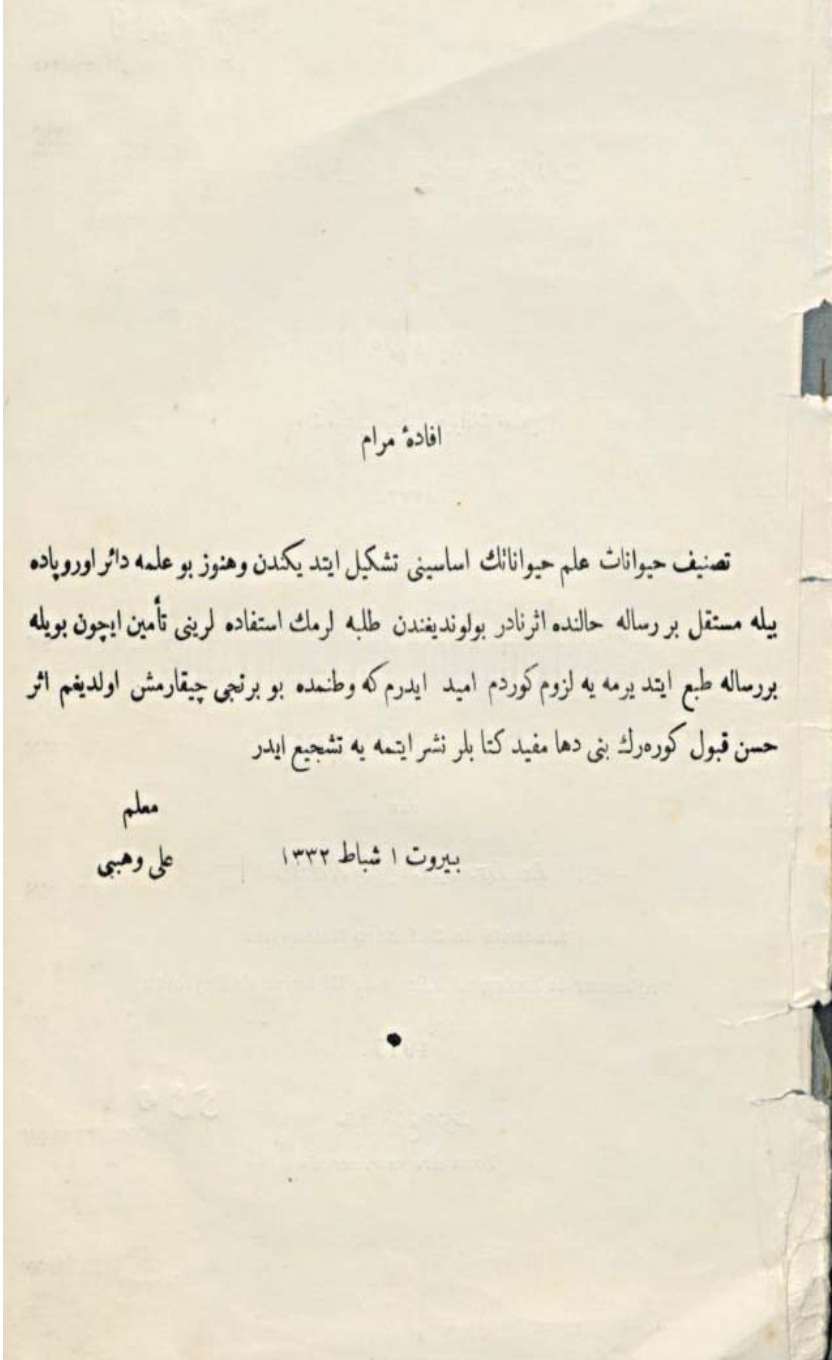 افادۀ مرام
تصنیف حیوانات علم حیواناتك اساسینی تشکیل ایتدیکندن وهنوز بو علمه دائر اوروپاده
بیله مستقل بر رساله حالنده اثرنادر بولوندیغندن طلبه لرمك استفاده لرینی تأمین ایچون بویله
بررساله طبع ایتدیرمه یه لزوم کوردم امید ایدرم که وطنمده بو برنجی چیقارمش اولدیغم اثر
حسن قبول کوره‌رك بنی دها مفید کتابلر نشر ایتمه یه تشجیع ایدر
معلم
بیروت ١ شباط ١٣٣٢ علی وهبی